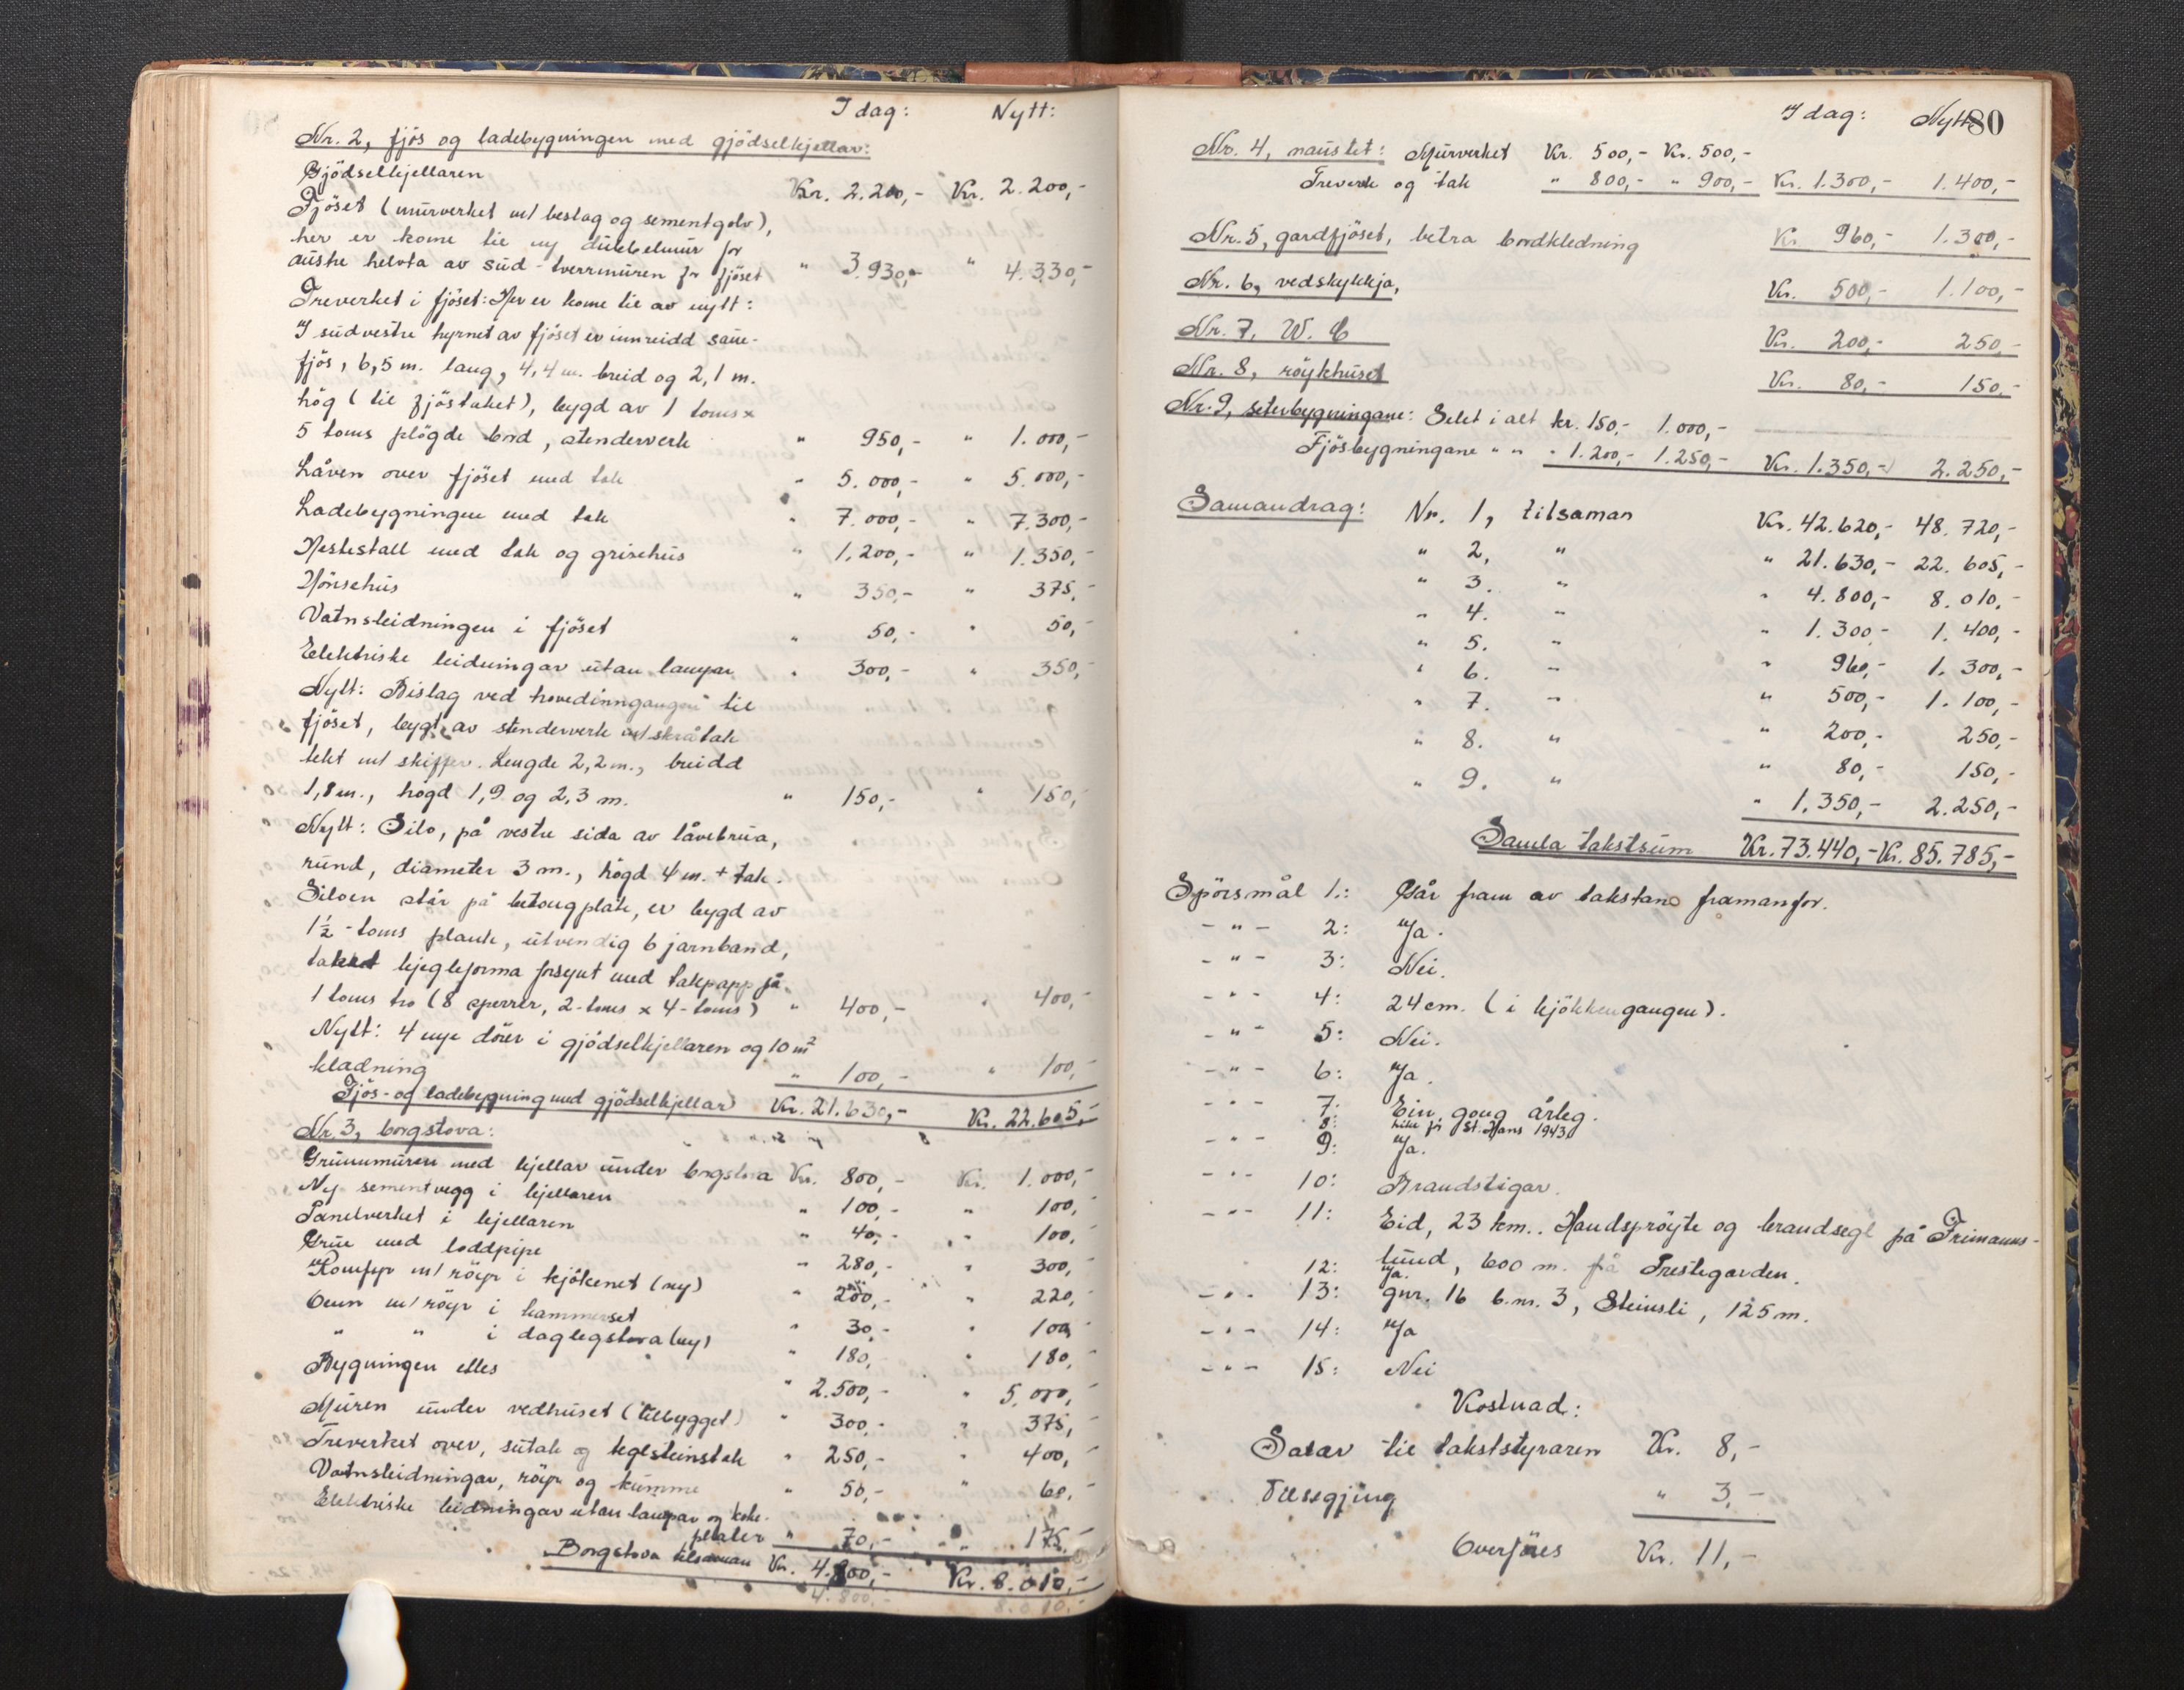 I dag: Nytt:
Nr. 2, fjös og ladebygningen med gjödselkjellar:
Gjödselkjellaren Kr. 2.200,- Kr. 2.200,-
Fjöset (murverket m/ beslag og sementgolv),
her er kome til ny dubbelmur for
austre helvta av süd-tverrmüren for fjöset " 3.930,- " 4.330,-
Treverket i fjöset: Her er kome til av nytt:
I südvestre hyrnet av fjöset er innreidd saue-
fjös, 6,5 m. lang, 4,4 m. breid og 2,1 m.
hög (til fjöstaket), bygd av 1 toms x
5 toms plögde bord, stenderverk " 950,- " 1.000,-
Låven over fjöset med tak " 5.000,- " 5.000,-
Ladebygningen med tak " 7.000,- " 7.300,-
Hestestall med tak og grisehüs " 1.200,- " 1.350,-
Hönsehüs " 350,- " 375,-
Vatnsleidningen i fjöset " 50,- " 50,-
Elektriske leidningar utan lampar " 300,- " 350,-
Nytt: Bislag ved hovedinngangen til
fjöset, bygt av stenderverk m/ skråtak
tekt m/ skiffer. Lengde 2,2 m., breidd
1,8 m., högd 1,9 og 2,3 m. " 150,- " 150,-
Nytt: Silo, på vestre sida av låvebrua,
rund, diameter 3 m., högd 4 m. + tak.
Siloen står på betongplate, er bygd av
1½-toms plank, utvendig 6 jarnband,
taket kjegleforma forsynt med takpapp på
1 toms tro (8 sperrer, 2-toms x 4-toms) " 400,- " 400,-
Nytt: 4 nye dörer i gjödselkjellaren og 10 m²
kladning " 100,- " 100,-
Fjös- og ladebygning med gjödselkjellar Kr. 21.630,- Kr. 22.605,-
Nr. 3, borgstova:
Grunnmüren med kjellar under borgstova Kr. 800,- Kr. 1.000,-
Ny sementvegg i kjellaren " 100,- " 100,-
Panelverket i kjellaren " 40,- " 100,-
Grüe med loddpipe " 280,- " 300,-
Komfyr m/ röyr i kjökenet (ny) " 200,- " 220,-
Omn m/ röyr i kammerset " 30,- " 100,-
" " i daglegstova (ny) " 180,- " 180,-
Bygningen elles " 2.500,- " 5.000,-
Müren ünder vedhüset (tilbygget) " 300,- " 375,-
Treverket over, sütak og teglsteinstak " 250,- " 400,-
Vatnsleidningar, röyr og kümme " 50,- " 60,-
Elektriske leidningar utan lampar og koke-
plater " 70,- " 175,-
Borgstova tilsaman Kr. 4.800,- Kr. 8.010,-
4.800.- 8.010.-
I dag: Nytt: 80
Nr. 4, naustet: Murverket Kr. 500,- Kr. 500,-
Treverk og tak " 800,- " 900,- Kr. 1.300,- 1.400,-
Nr. 5, gardfjöset, betra bordkledning Kr. 960,- 1.300,-
Nr. 6, vedskykkja, Kr. 500,- 1.100,-
Nr. 7, W. C Kr. 200,- 250,-
Nr. 8, röykhuset Kr. 80,- 150,-
Nr. 9, seterbygningane: Selet i alt kr. 150,- 1.000,-
Fjösbygningane " " " 1.200,- 1.250,- Kr. 1.350,- 2.250,-
Samandrag: Nr. 1, tilsaman Kr. 42.620,- 48.720,-
" 2, " " 21.630,- 22.605,-
" 3. " " 4.800,- 8.010,-
" 4. " " 1.300,- 1.400,-
" 5. " " 960,- 1.300,-
" 6. " " 500,- 1.100,-
" 7. " " 200,- 250,-
" 8. " " 80,- 150,-
" 9. " " 1.350,- 2.250,-
Samla takstsum Kr. 73.440,- Kr. 85.785,-
Spörsmål 1.: Går fram av takstane framanfor.
- " - 2: Ja.
- " - 3: Nei.
- " - 4: 24 cm. (i kjökkengangen).
- " - 5: Nei.
- " - 6: Ja.
- " - 7: Ein gong årleg.
8: like för St. Hans 1943
- " - 9: Ja.
- " - 10: Brandstigar.
- " - 11: Eid, 23 km.. Handspröyte og brandsegl på Frimanns-
lund, 600 m. frå Prestegarden.
12: Ja.
- " - 13: gnr. 16 b.nr. 3, Steinsli, 125 m.
- " - 14: Ja
- " - 15: Nei
Kostnad:
Satar til takststyraren Kr. 8,-
Tilsegjing " 3,-
Overföres Kr. 11,-